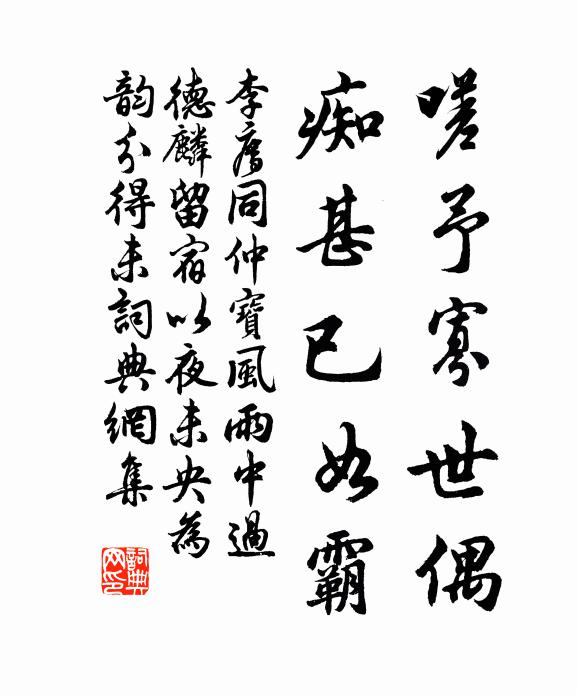 嗟予寡世偶
痴甚已如霸
李廌同仲寶風雨中過
德麟留宿以夜未央為
韵分得未詞典網集
詞典网印